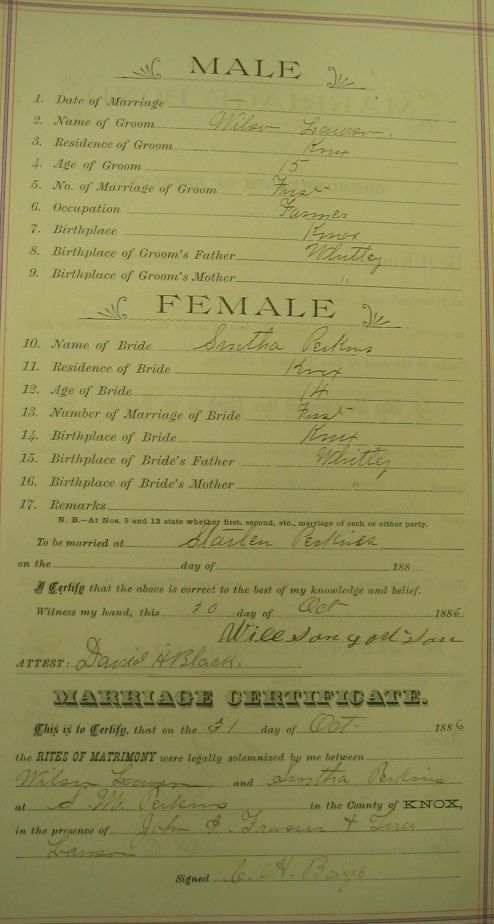 MALE
1. Date of Marriage
2. Name of Groom Wilson Lawson.
3. Residence of Groom Knox
4. Age of Groom 15
5. No. of Marriage of Groom First
6. Occupation Farmer
7. Birthplace Knox
8. Birthplace of Groom's Father Whitley
9. Birthplace of Groom's Mother "
FEMALE
10. Name of Bride Sintha Perkins
11. Residence of Bride Knox
12. Age of Bride 14
13. Number of Marriage of Bride First
14. Birthplace of Bride Knox
15. Birthplace of Bride's Father Whitley
16. Birthplace of Bride's Mother "
17. Remarks
N. B.—At Nos. 5 and 13 state whether first, second, etc., marriage of each or either party.
To be married at Starlen Perkines
on the day of 188
I Certify that the above is correct to the best of my knowledge and belief.
Witness my hand, this 30 day of Oct 1886
ATTEST: David H Black.
MARRIAGE CERTIFICATE.
This is to Certify, that on the 31 day of Oct- 1886
the RITES OF MATRIMONY were legally solemnized by me between
Wilson Lawson and Sintha Perkins
at S. M. Perkins in the County of KNOX,
in the presence of John & Tira
Lawson
Signed Bays